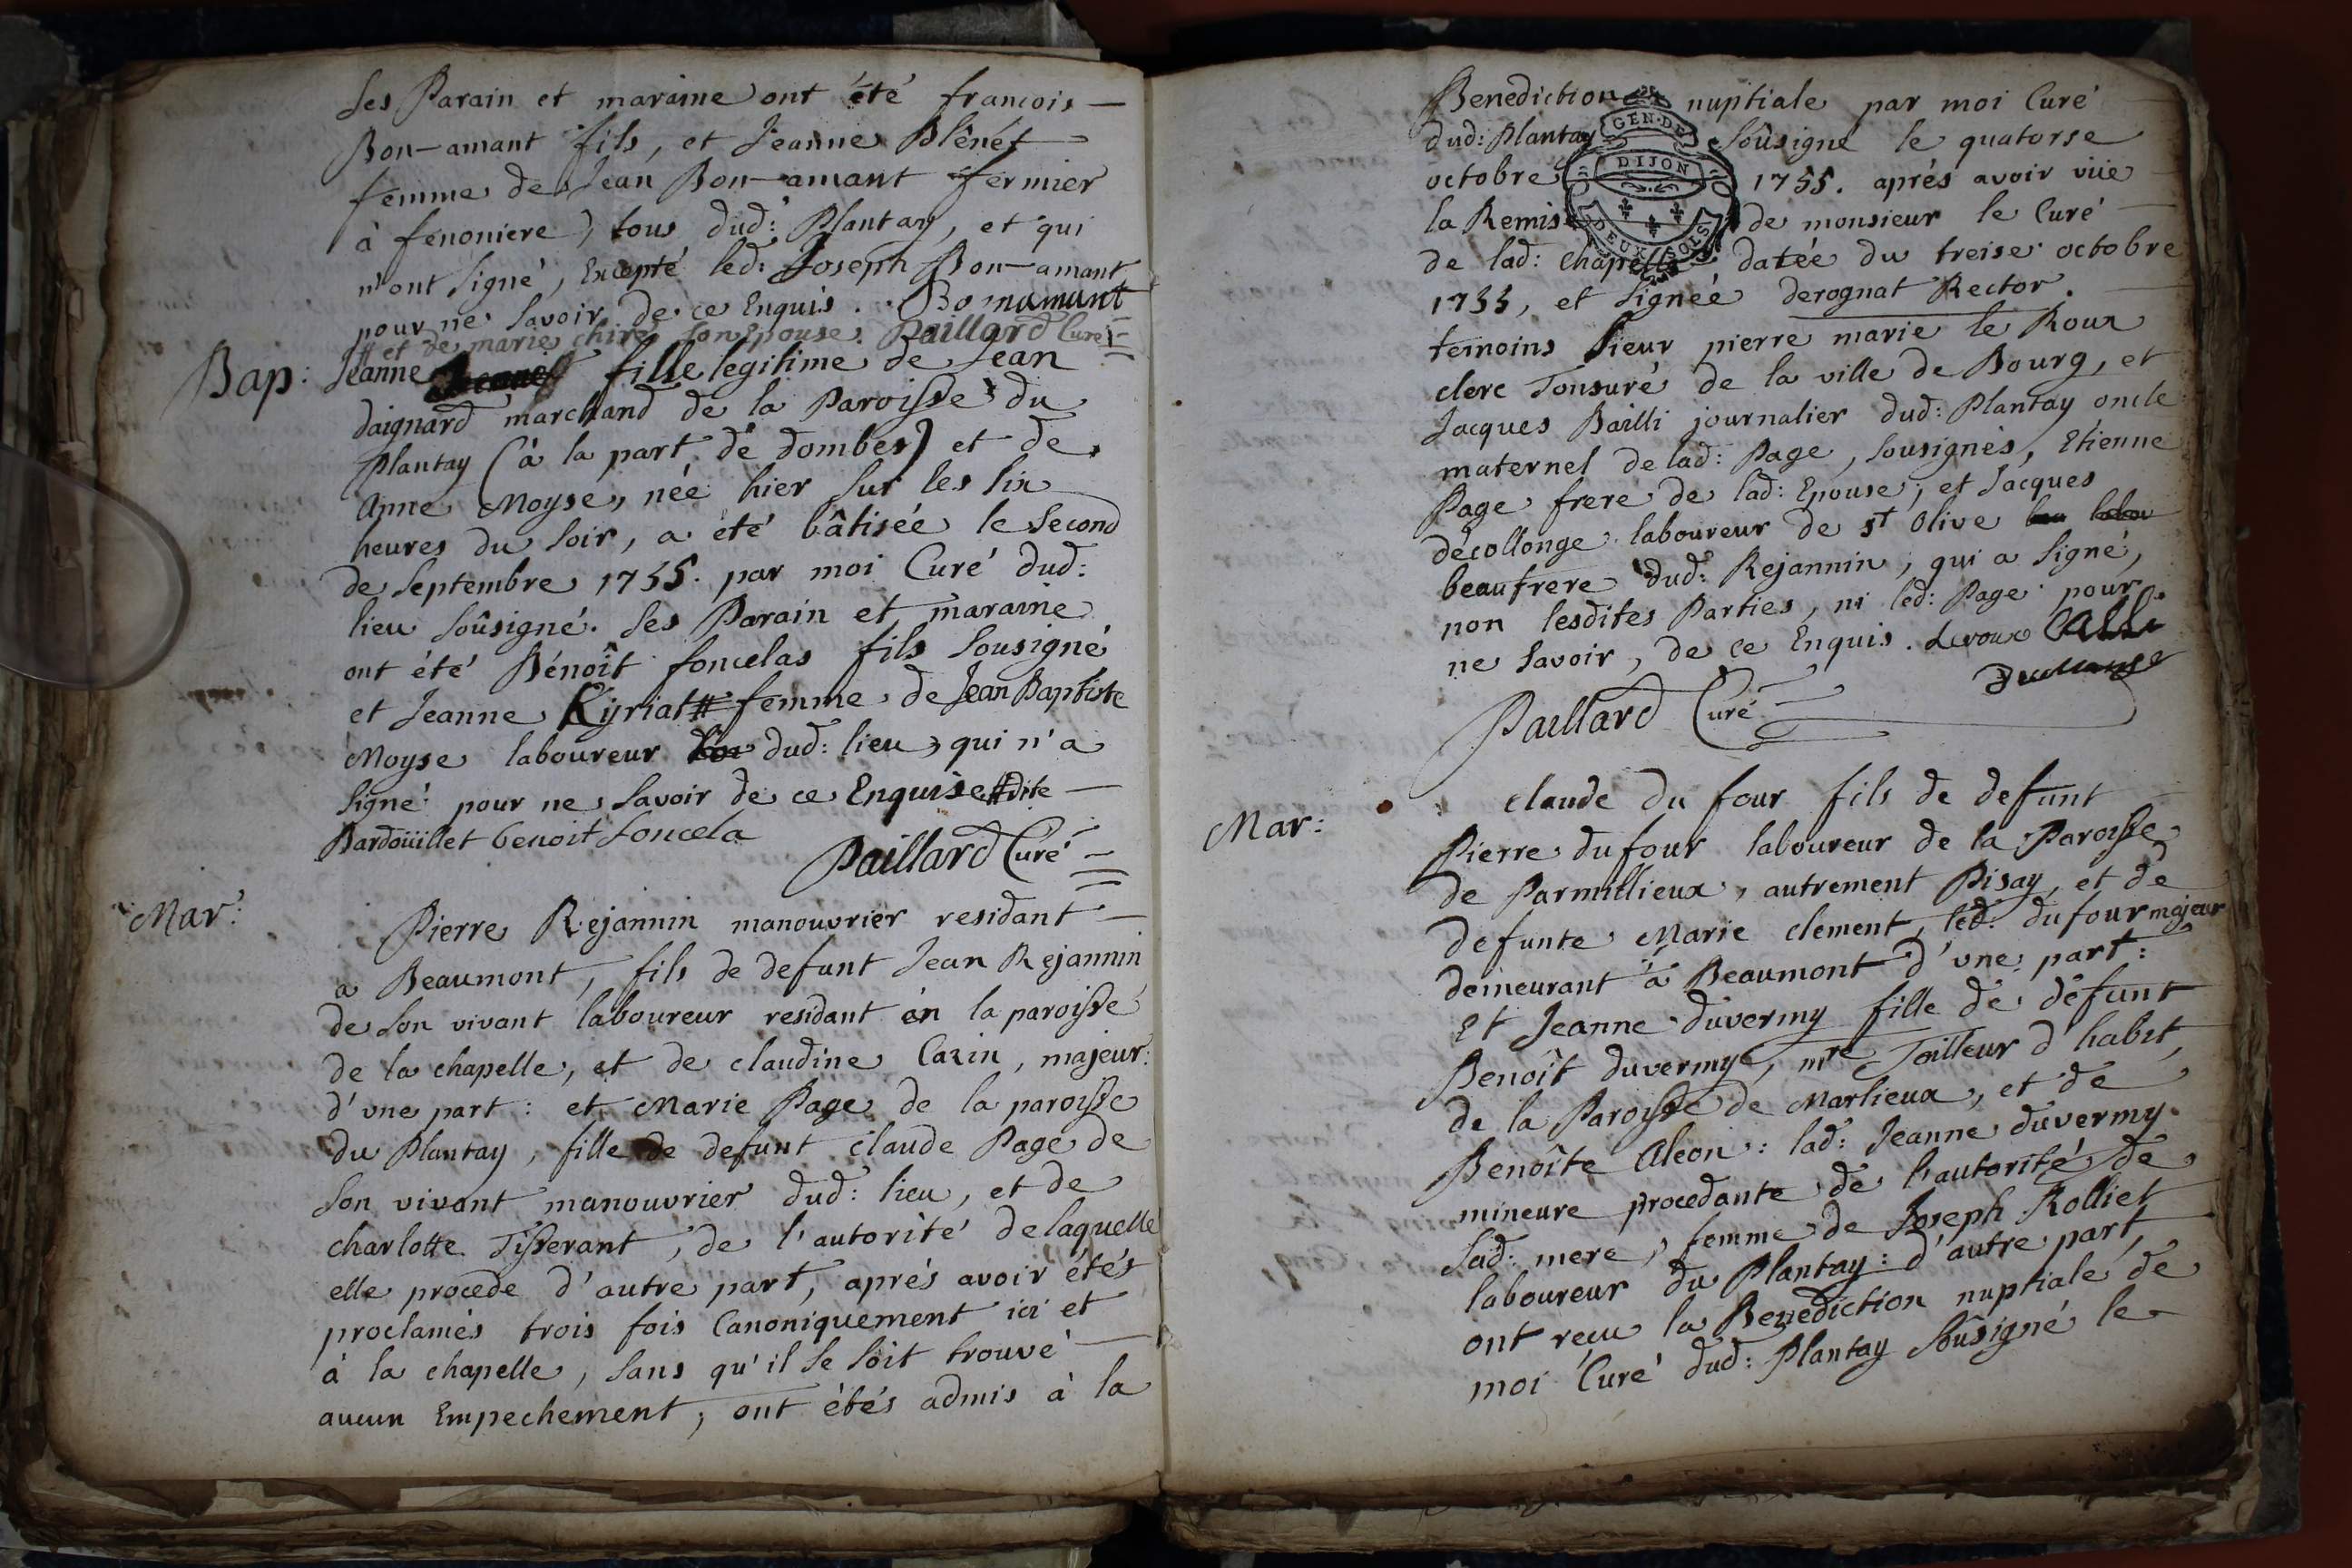 Ses Parain et maraine ont été francois
Bon-amant fils, et Jeanne Blénet
femme de Jean Bon-amant fermier
à fenoniere, tous dud: Plantay, et qui
n'ont signé, Excepté led: Joseph Bon-amant
pour ne savoir de ce Enquis. Bonamant
# et de marie chiré son Epouse. Paillard Curé
Bap: Jeanne fille legitime de Jean
daignard marchand de la Paroisse du
Plantay (à la part de dombes) et de
Anne Moyse, née hier sur les six
heures du soir, a été bâtisée le second
de septembre 1755. par moi Curé dud:
lieu soûsigné. Ses Parain et maraine
ont été Bénoît foncelas fils sousigné
et Jeanne Kyriat # femme de Jean Baptiste
Moyse laboureur dud: lieu, qui n'a
signé pour ne savoir de ce Enquise # dite
Bardoüillet benoit foncela
Paillard Curé
Mar: Pierre Rejannin manouvrier residant
a Beaumont, fils de defunt Jean Rejannin
de son vivant laboureur residant en la paroisse
de la chapelle, et de claudine Cazin, majeur:
d'une part: et Marie Page de la paroisse
du Plantay, fille de defunt claude Page de
son vivant manouvrier dud: lieu, et de
charlotte Tisserant, de l'autorité de laquelle
elle procede d'autre part, aprés avoir étés
proclamés trois fois Canoniquement ici et
à la chapelle, sans qu'il se soit trouvé
aucun Empechement, ont étés admis à la
Benediction nuptiale par moi Curé
dud: Plantay soûsigné le quatorse
octobre 1755. aprés avoir vüe
la Remise de monsieur le Curé
de lad: chapelle datée du treise octobre
1755, et signée derognat Rector.
GEN. DE
DIJON
DEUX SOLS
temoins sieur pierre marie le Roux
clerc Tonsuré de la ville de Bourg, et
Jacques Bailli journalier dud: Plantay oncle
maternel de lad: Page, sousignés, Etienne
Page frere de lad: Epouse; et Jacques
décollonge laboureur de st Olive
beaufrere dud: Rejannin, qui a signé,
non lesdites Parties, ni led: Page pour
ne savoir, de ce Enquis. Leroux
Paillard Curé
Mar: claude du four fils de defunt
Pierre dufour laboureur de la Paroisse
de Parmillieux, autrement Pisay, et de
defunte Marie clement, led: dufour majeur
demeurant à Beaumont d'une part:
Et Jeanne duvermy fille de defunt
Benoît duvermye, mre Tailleur d'habit,
de la Paroisse de Marlieux, et de
Benoîte Aleon: lad: Jeanne duvermy
mineure procedante de l'autorité de
sad: mere, femme de Joseph Rolliet
laboureur du Plantay: d'autre part,
ont reçu la Benediction nuptiale de
moi Curé dud: Plantay soûsigné le